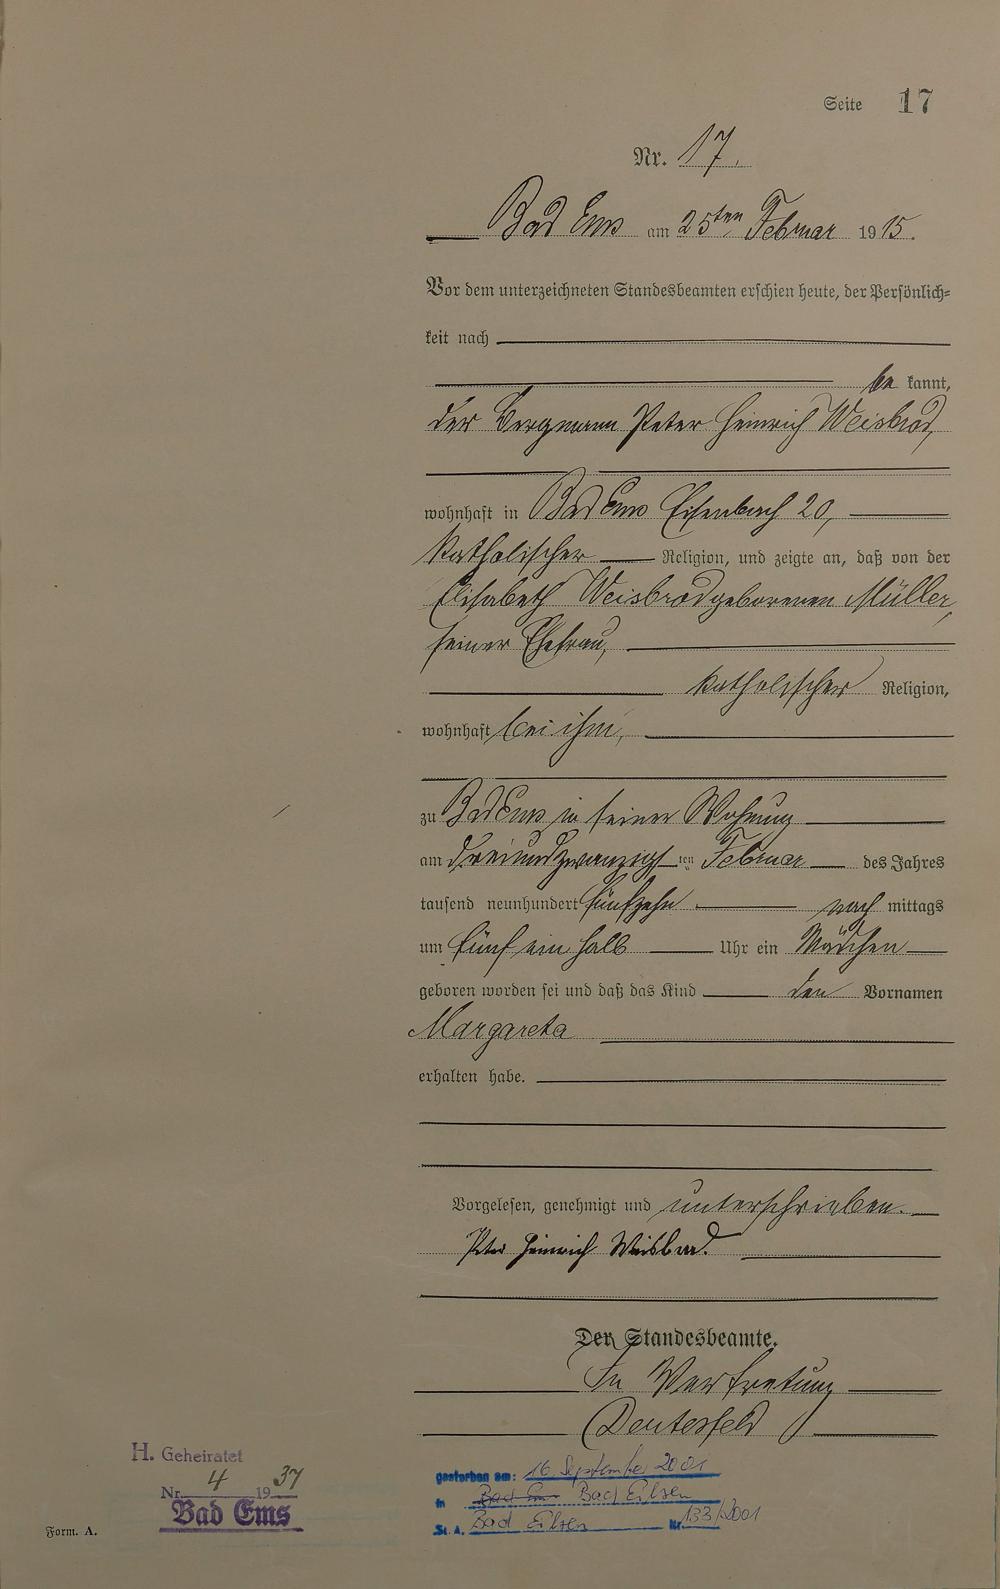 Seite 17
Nr. 17.
Bad Ems am 25ten Februar 1915.
Vor dem unterzeichneten Standesbeamten erschien heute, der Persönlich-
keit nach
be kannt,
der Bergmann Peter Heinrich Weisbrod,
wohnhaft in Bad Ems Eisenbach 20,
katholischer Religion, und zeigte an, daß von der
Elisabeth Weisbrod geborenen Müller,
seiner Ehefrau,
katholischer Religion,
wohnhaft bei ihm,
zu Bad Ems in seiner Wohnung
am dreiundzwanzigsten Februar des Jahres
tausend neunhundert fünfzehn nach mittags
um fünf ein halb Uhr ein Mädchen
geboren worden sei und daß das Kind den Vornamen
Margareta
erhalten habe.
Vorgelesen, genehmigt und unterschrieben.
Peter Heinrich Weisbrod.
Der Standesbeamte.
In Vertretung
H. Geheiratet
Nr. 4 1937
Bad Ems
Form. A.
gestorben am: 16. September 2001
in Bad Ems Bad Eilsen
St. A. Bad Eilsen Nr. 133/2001